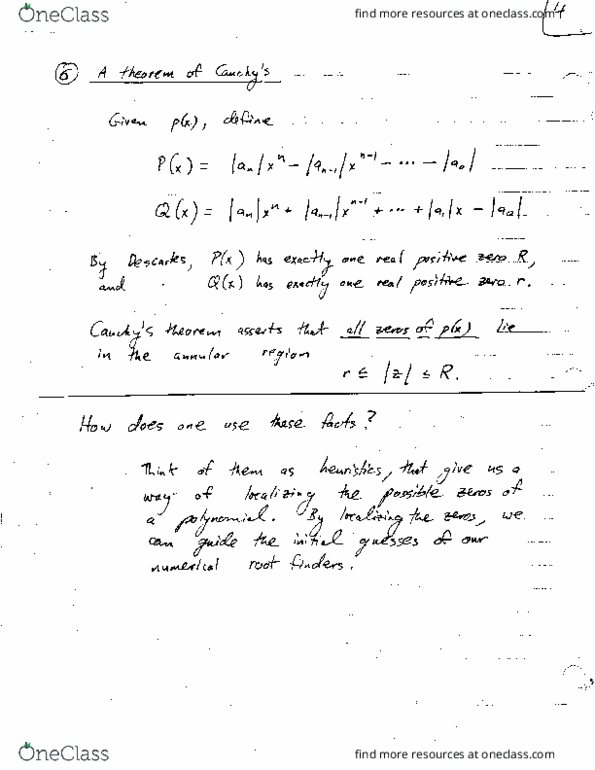 OneClass
find more resources at oneclass.com
4
⑥ A theorem of Cauchy's
Given p(x), define
P(x) = |aₙ|xⁿ - |aₙ₋₁|xⁿ⁻¹ - ... - |a₀|
Q(x) = |aₙ|xⁿ + |aₙ₋₁|xⁿ⁻¹ + ... + |a₁|x - |a₀|.
By Descartes, P(x) has exactly one real positive zero R,
and Q(x) has exactly one real positive zero r.
Cauchy's theorem asserts that all zeros of p(x) lie
in the annular region
r ≤ |z| ≤ R.
How does one use these facts?
Think of them as heuristics, that give us a
way of localizing the possible zeros of
a polynomial. By localizing the zeros, we
can guide the initial guesses of our
numerical root finders.
OneClass
find more resources at oneclass.com